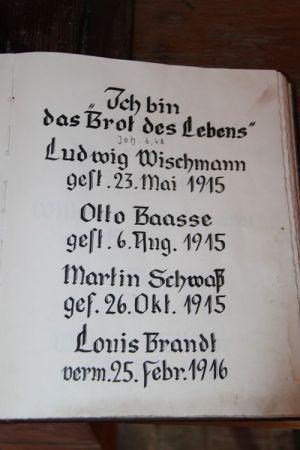 Ich bin
das "Brot des Lebens"
Joh. 6.48
Ludwig Wischmann
gest. 23. Mai 1915
Otto Baasse
gest. 6. Aug. 1915
Martin Schwaß
gef. 26. Okt. 1915
Louis Brandt
verm. 25. Febr. 1916